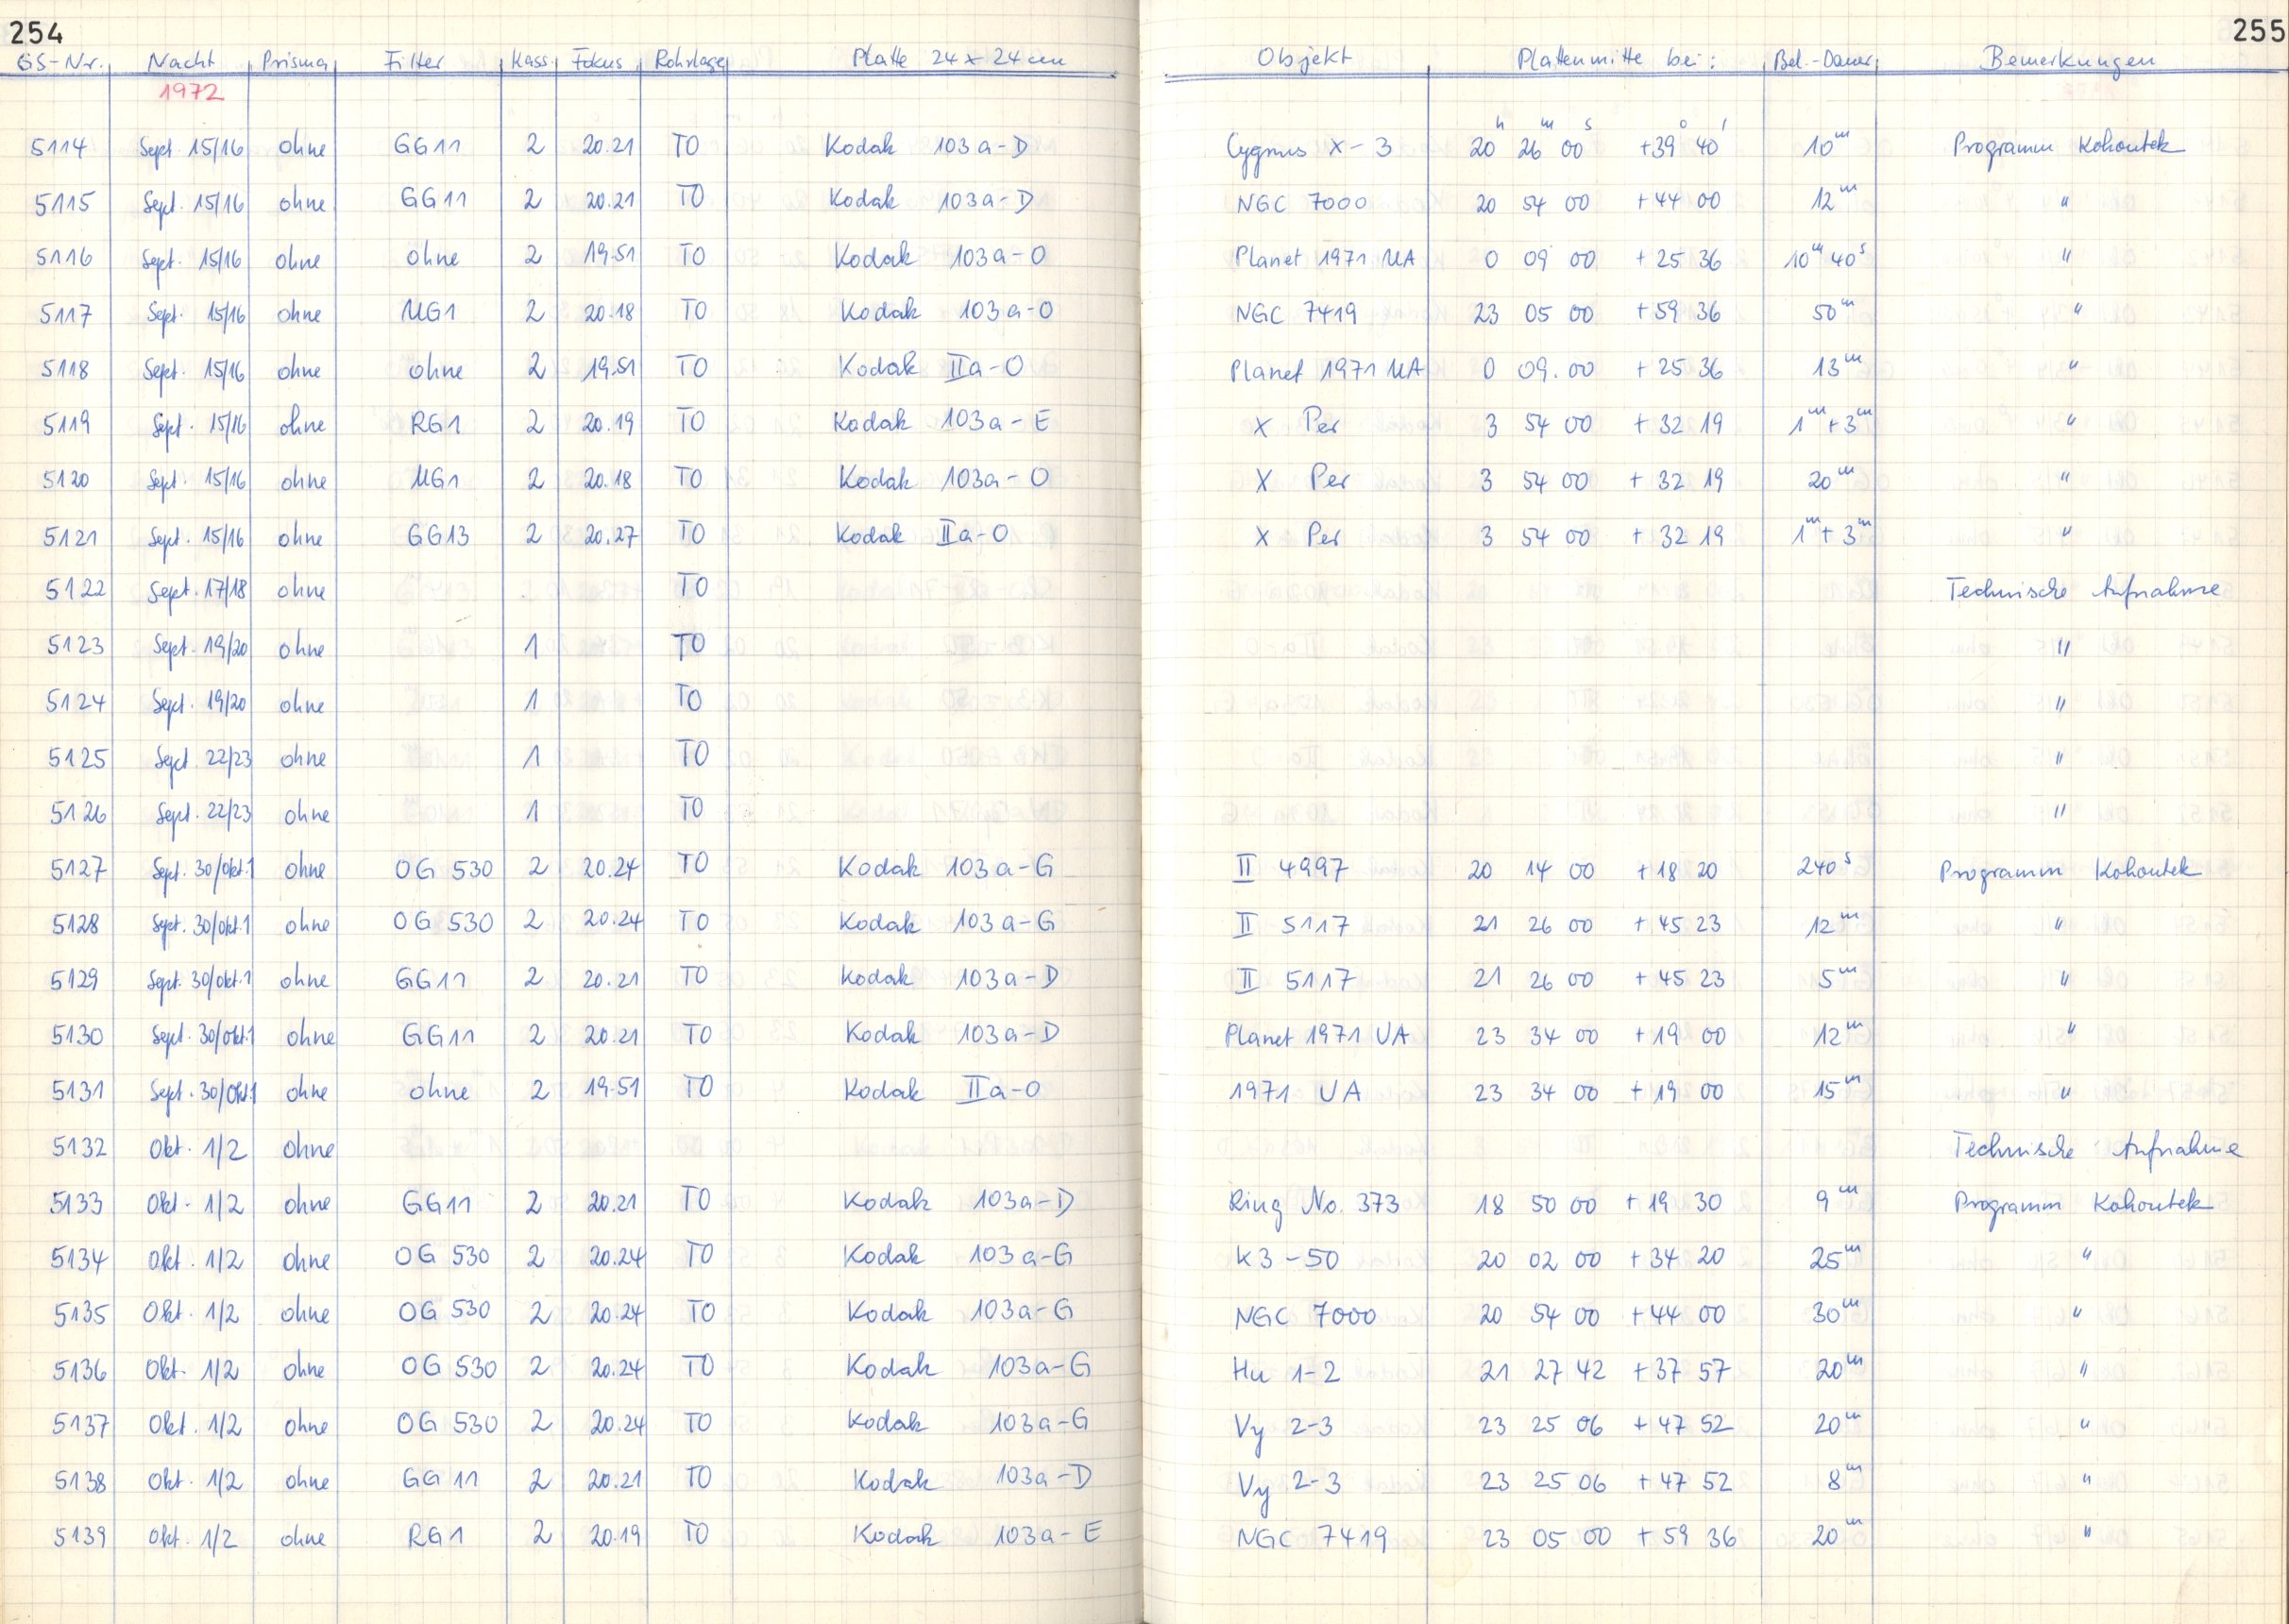 254
255
GS-Nr. Nacht Prisma Filter Kass. Fokus Rohrlage Platte 24 x 24 cm Objekt Plattenmitte bei: Bel.-Dauer Bemerkungen
1972
5114 Sept. 15/16 ohne GG11 2 20.21 TO Kodak 103a-D Cygnus X-3 20h 26m 00s +39° 40' 10m Programm Kohoutek
5115 Sept. 15/16 ohne GG11 2 20.21 TO Kodak 103a-D NGC 7000 20 54 00 +44 00 12m "
5116 Sept. 15/16 ohne ohne 2 19.51 TO Kodak 103a-O Planet 1971 UA 0 09 00 +25 36 10m 40s "
5117 Sept. 15/16 ohne UG1 2 20.18 TO Kodak 103a-O NGC 7419 23 05 00 +59 36 50m "
5118 Sept. 15/16 ohne ohne 2 19.51 TO Kodak IIa-O Planet 1971 UA 0 09.00 +25 36 13m "
5119 Sept. 15/16 ohne RG1 2 20.19 TO Kodak 103a-E X Per 3 54 00 +32 19 1m+3m "
5120 Sept. 15/16 ohne UG1 2 20.18 TO Kodak 103a-O X Per 3 54 00 +32 19 20m "
5121 Sept. 15/16 ohne GG13 2 20.27 TO Kodak IIa-O X Per 3 54 00 +32 19 1m+3m "
5122 Sept. 17/18 ohne TO Technische Aufnahme
5123 Sept. 19/20 ohne 1 TO "
5124 Sept. 19/20 ohne 1 TO "
5125 Sept. 22/23 ohne 1 TO "
5126 Sept. 22/23 ohne 1 TO "
5127 Sept. 30/Okt.1 ohne OG 530 2 20.24 TO Kodak 103a-G II 4997 20 14 00 +18 20 240s Programm Kohoutek
5128 Sept. 30/Okt.1 ohne OG 530 2 20.24 TO Kodak 103a-G II 5117 21 26 00 +45 23 12m "
5129 Sept. 30/Okt.1 ohne GG11 2 20.21 TO Kodak 103a-D II 5117 21 26 00 +45 23 5m "
5130 Sept. 30/Okt.1 ohne GG11 2 20.21 TO Kodak 103a-D Planet 1971 UA 23 34 00 +19 00 12m "
5131 Sept. 30/Okt.1 ohne ohne 2 19.51 TO Kodak IIa-O 1971 UA 23 34 00 +19 00 15m "
5132 Okt. 1/2 ohne Technische Aufnahme
5133 Okt. 1/2 ohne GG11 2 20.21 TO Kodak 103a-D Ring No. 373 18 50 00 +19 30 9m Programm Kohoutek
5134 Okt. 1/2 ohne OG 530 2 20.24 TO Kodak 103a-G K3-50 20 02 00 +34 20 25m "
5135 Okt. 1/2 ohne OG 530 2 20.24 TO Kodak 103a-G NGC 7000 20 54 00 +44 00 30m "
5136 Okt. 1/2 ohne OG 530 2 20.24 TO Kodak 103a-G Hu 1-2 21 27 42 +37 57 20m "
5137 Okt. 1/2 ohne OG 530 2 20.24 TO Kodak 103a-G Vy 2-3 23 25 06 +47 52 20m "
5138 Okt. 1/2 ohne GG 11 2 20.21 TO Kodak 103a-D Vy 2-3 23 25 06 +47 52 8m "
5139 Okt. 1/2 ohne RG1 2 20.19 TO Kodak 103a-E NGC 7419 23 05 00 +59 36 20m "